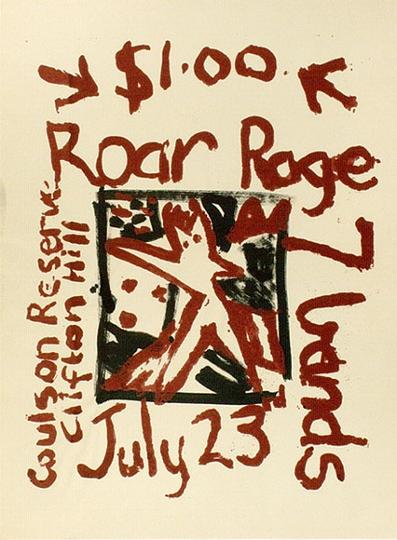 $1.00
Roar Rage
7 bands
July 23
Coulson Reserve
Clifton Hill